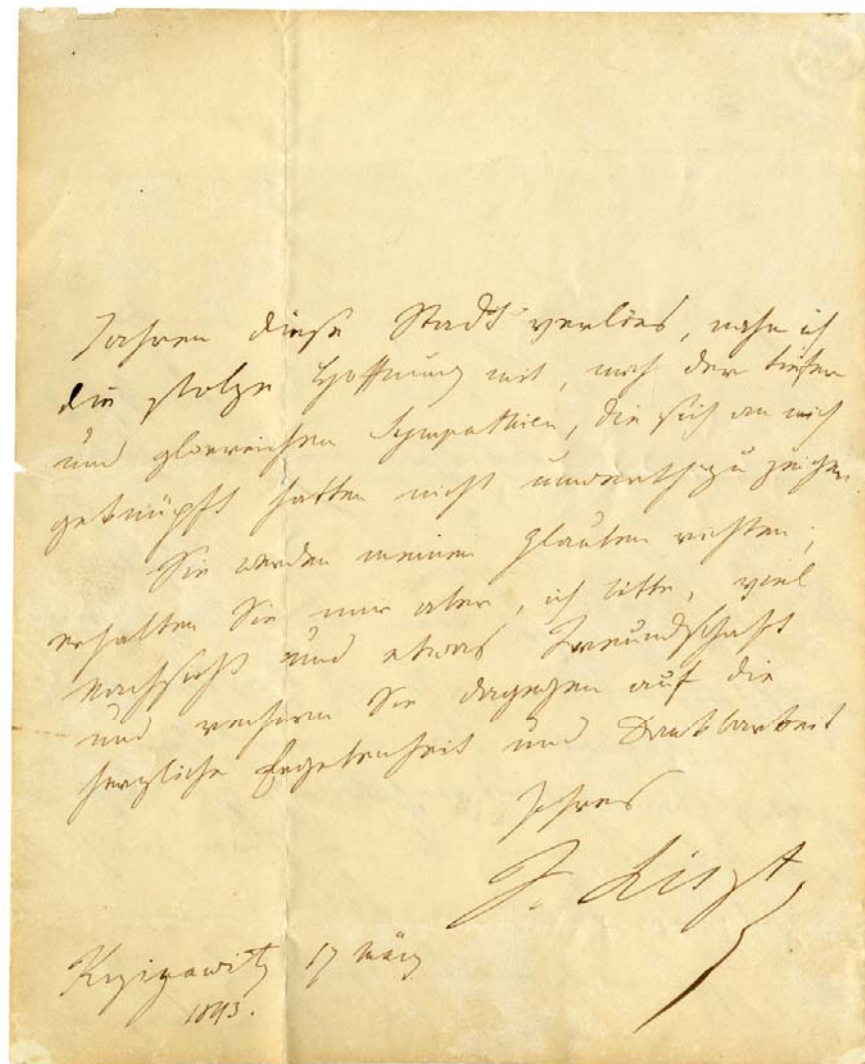 Jahren diese Stadt verlies, nahm ich
die stolze Hoffnung mit, mich der tiefen
und glorreichen Sympathien, die sich an mich
geknüpft hatten nicht unwerth zu zeigen.
Sie werden meinen Glauben richten;
erhalten Sie mir aber, ich bitte, viel
Nachsicht und etwas Freundschaft
und rechnen Sie dagegen auf die
herzliche Ergebenheit und Dankbarkeit
Ihres
F. Liszt
Krzizanowitz 17 März
1843.